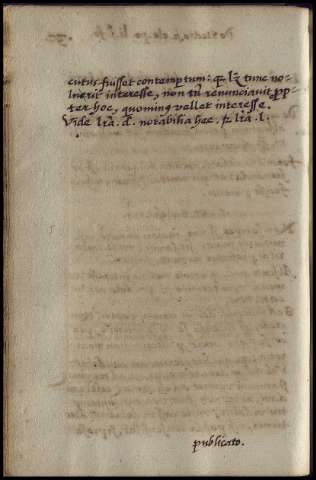 cutus fuisset contemptum: q̃ lꝫ tunc no-
luerit interesse, non tñ renunciavit ꝓp-
ter hoc, quominus vellet interesse.
Vide lr̃a. d. notabilia hec. p̃ lr̃a .l.
publicato.